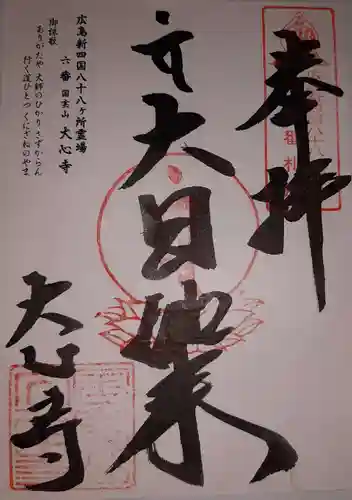 奉拝
大日如来
大心寺
広島新四国八十八ヶ所霊場
六番 国玉山 大心寺
御詠歌
ありがたや 大師のひかりさずからん
行く道ひとつくにざねのやま